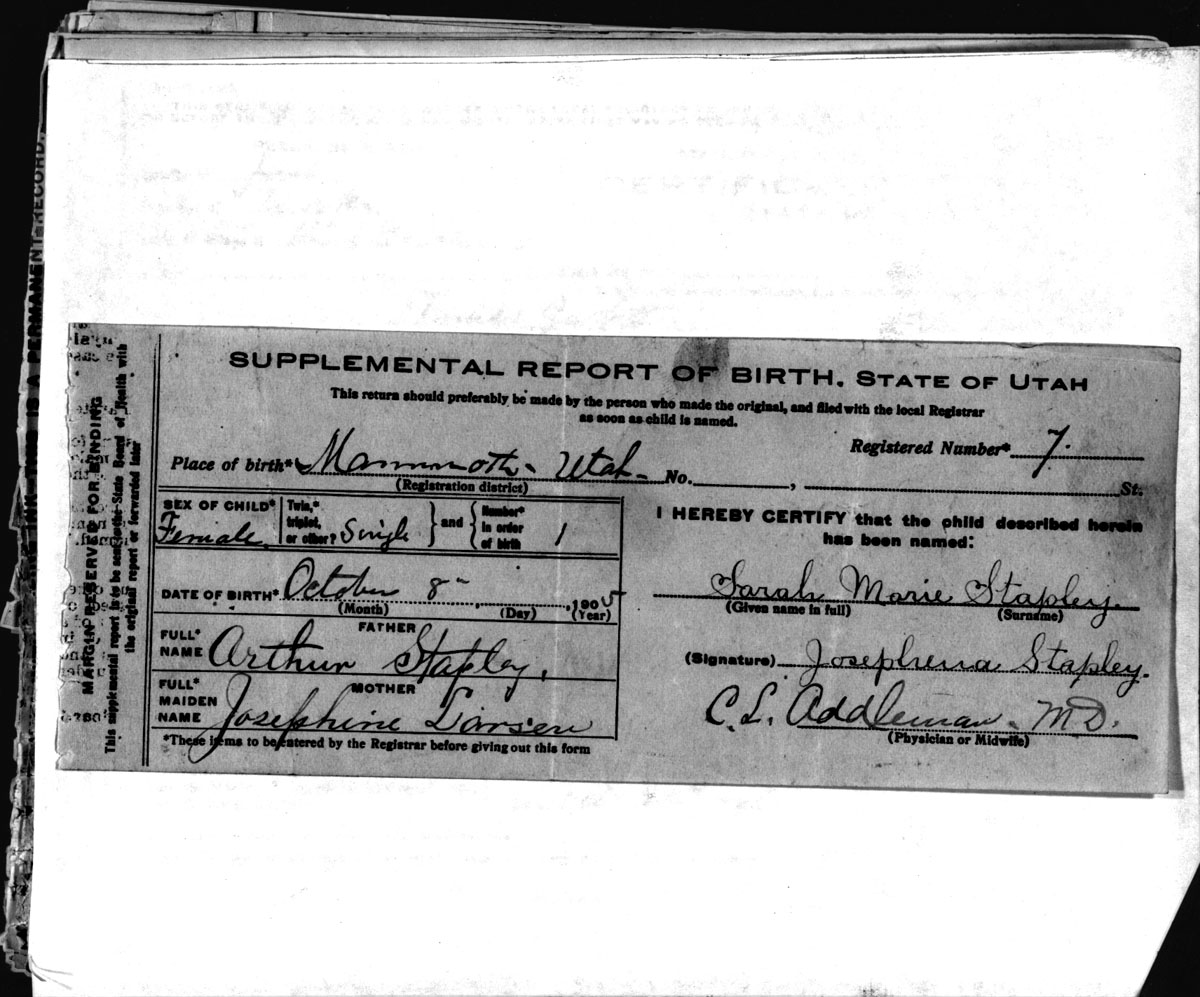 SUPPLEMENTAL REPORT OF BIRTH. STATE OF UTAH
This return should preferably be made by the person who made the original, and filed with the local Registrar
as soon as child is named.
Registered Number* 7.
Place of birth* Mammoth - Utah - No. , St.
(Registration district)
SEX OF CHILD* Female
Twin,* triplet, or other? Single
and
Number* in order of birth 1
DATE OF BIRTH* October 8 , 1905
(Month) (Day) (Year)
FATHER
FULL* NAME Arthur Stapley.
MOTHER
FULL* MAIDEN NAME Josephine Larsen
*These items to be entered by the Registrar before giving out this form
I HEREBY CERTIFY that the child described herein
has been named:
Sarah Marie Stapley.
(Given name in full) (Surname)
(Signature) Josephena Stapley.
C. L. Addleman. M.D.
(Physician or Midwife)
MARGIN RESERVED FOR BINDING
This supplemental report is to be sent to the State Board of Health with
the original report or forwarded later
IS A PERMANENT RECORD.